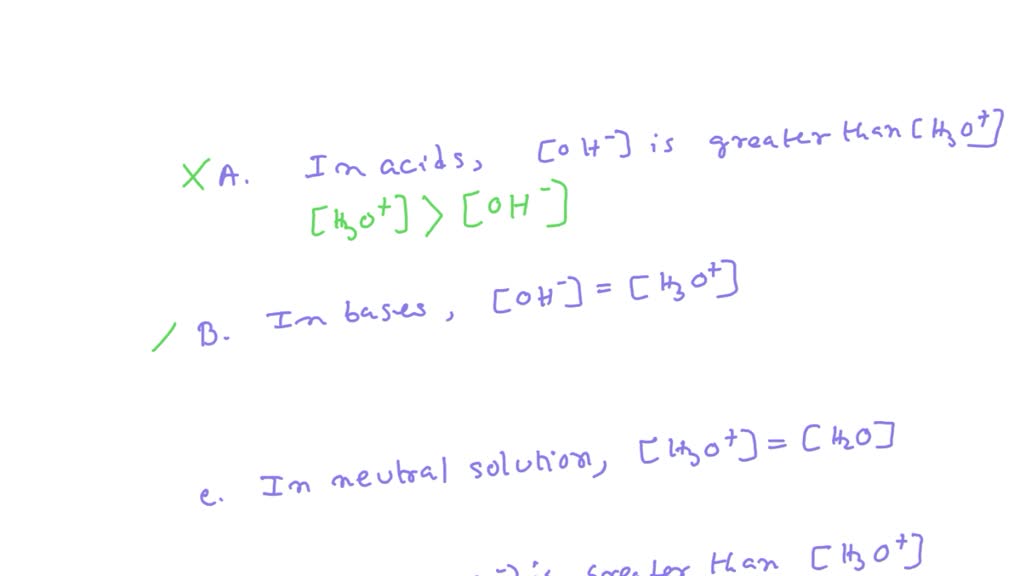 X A. In acids, [OH⁻] is greater than [H₃O⁺]
[H₃O⁺] > [OH⁻]
/ B. In bases, [OH⁻] = [H₃O⁺]
c. In neutral solution, [H₃O⁺] = [H₂O]
⁻] is greater than [H₃O⁺]